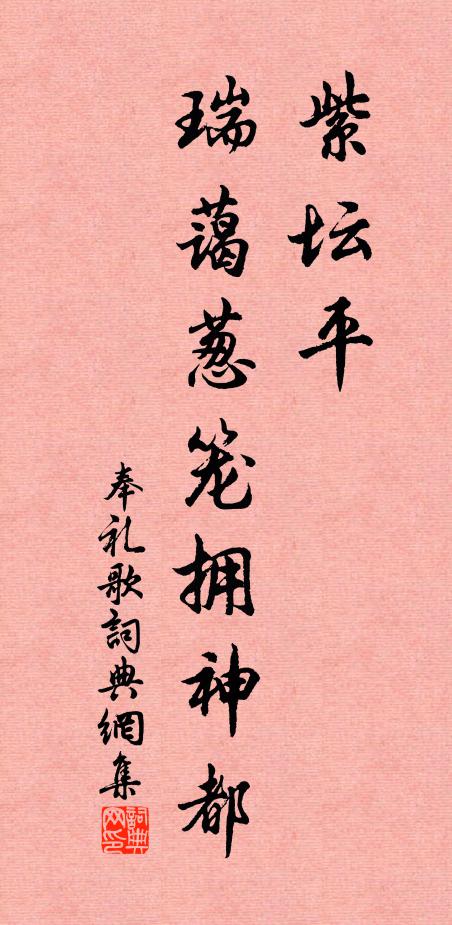 紫坛平
瑞蔼葱笼拥神都
奉礼歌詞典網集
詞典网印